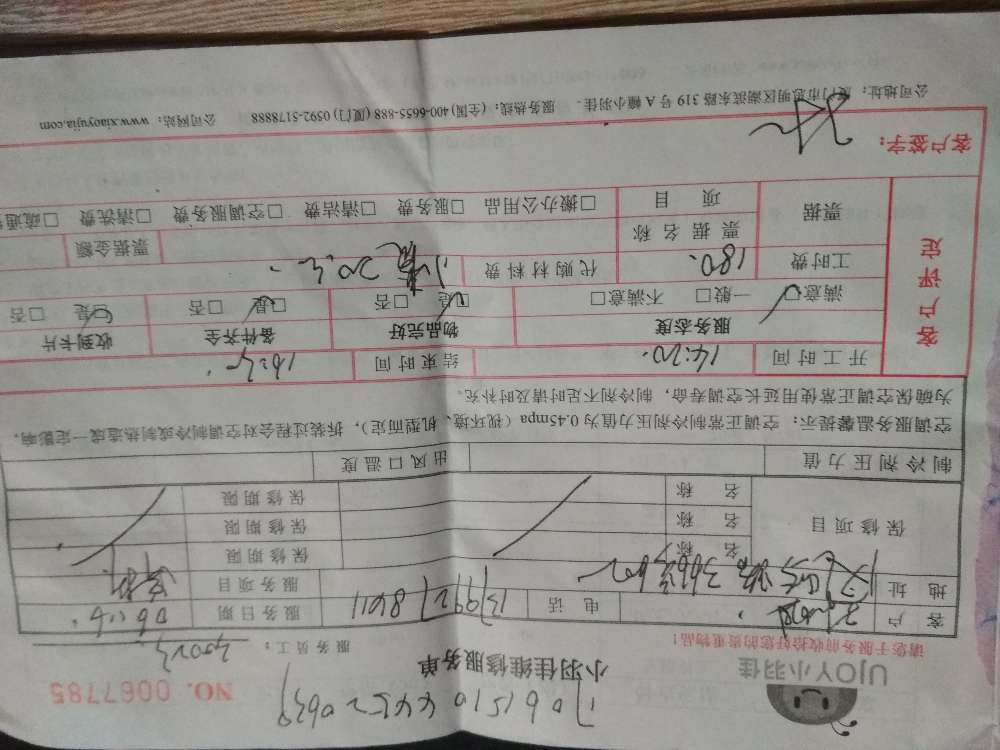 UJOY小羽佳
小羽佳维修服务单
NO. 0067785
请您于服务前收拾好您的贵重物品!
服务员工:
客户
电话
服务日期
地址
服务项目
保修项目
名称
保修期限
名称
保修期限
名称
保修期限
制冷剂压力值
出风口温度
空调服务温馨提示: 空调正常制冷剂压力值为 0.45mpa (视环境、机型而定), 拆装过程会对空调制冷或制热造成一定影响,
为确保空调正常使用延长空调寿命, 制冷剂不足时请及时补充。
开工时间 14:20.
结束时间
客户评定
服务态度
物品完好
备件齐全
收到卡片
满意□ 一般□ 不满意□
□是 □否
□是 □否
□是 □否
工时费 180.
代购材料费
票据
票据名称
票据金额
项目
□搬办公用品 □服务费 □清洁费 □空调服务费 □清洗费 □疏通
客户签字:
公司地址: 厦门市思明区湖滨东路 319 号 A 幢小羽佳. 服务热线: (全国) 400-6655-888 (厦门) 0592-5178888 公司网站: www.xiaoyujia.com